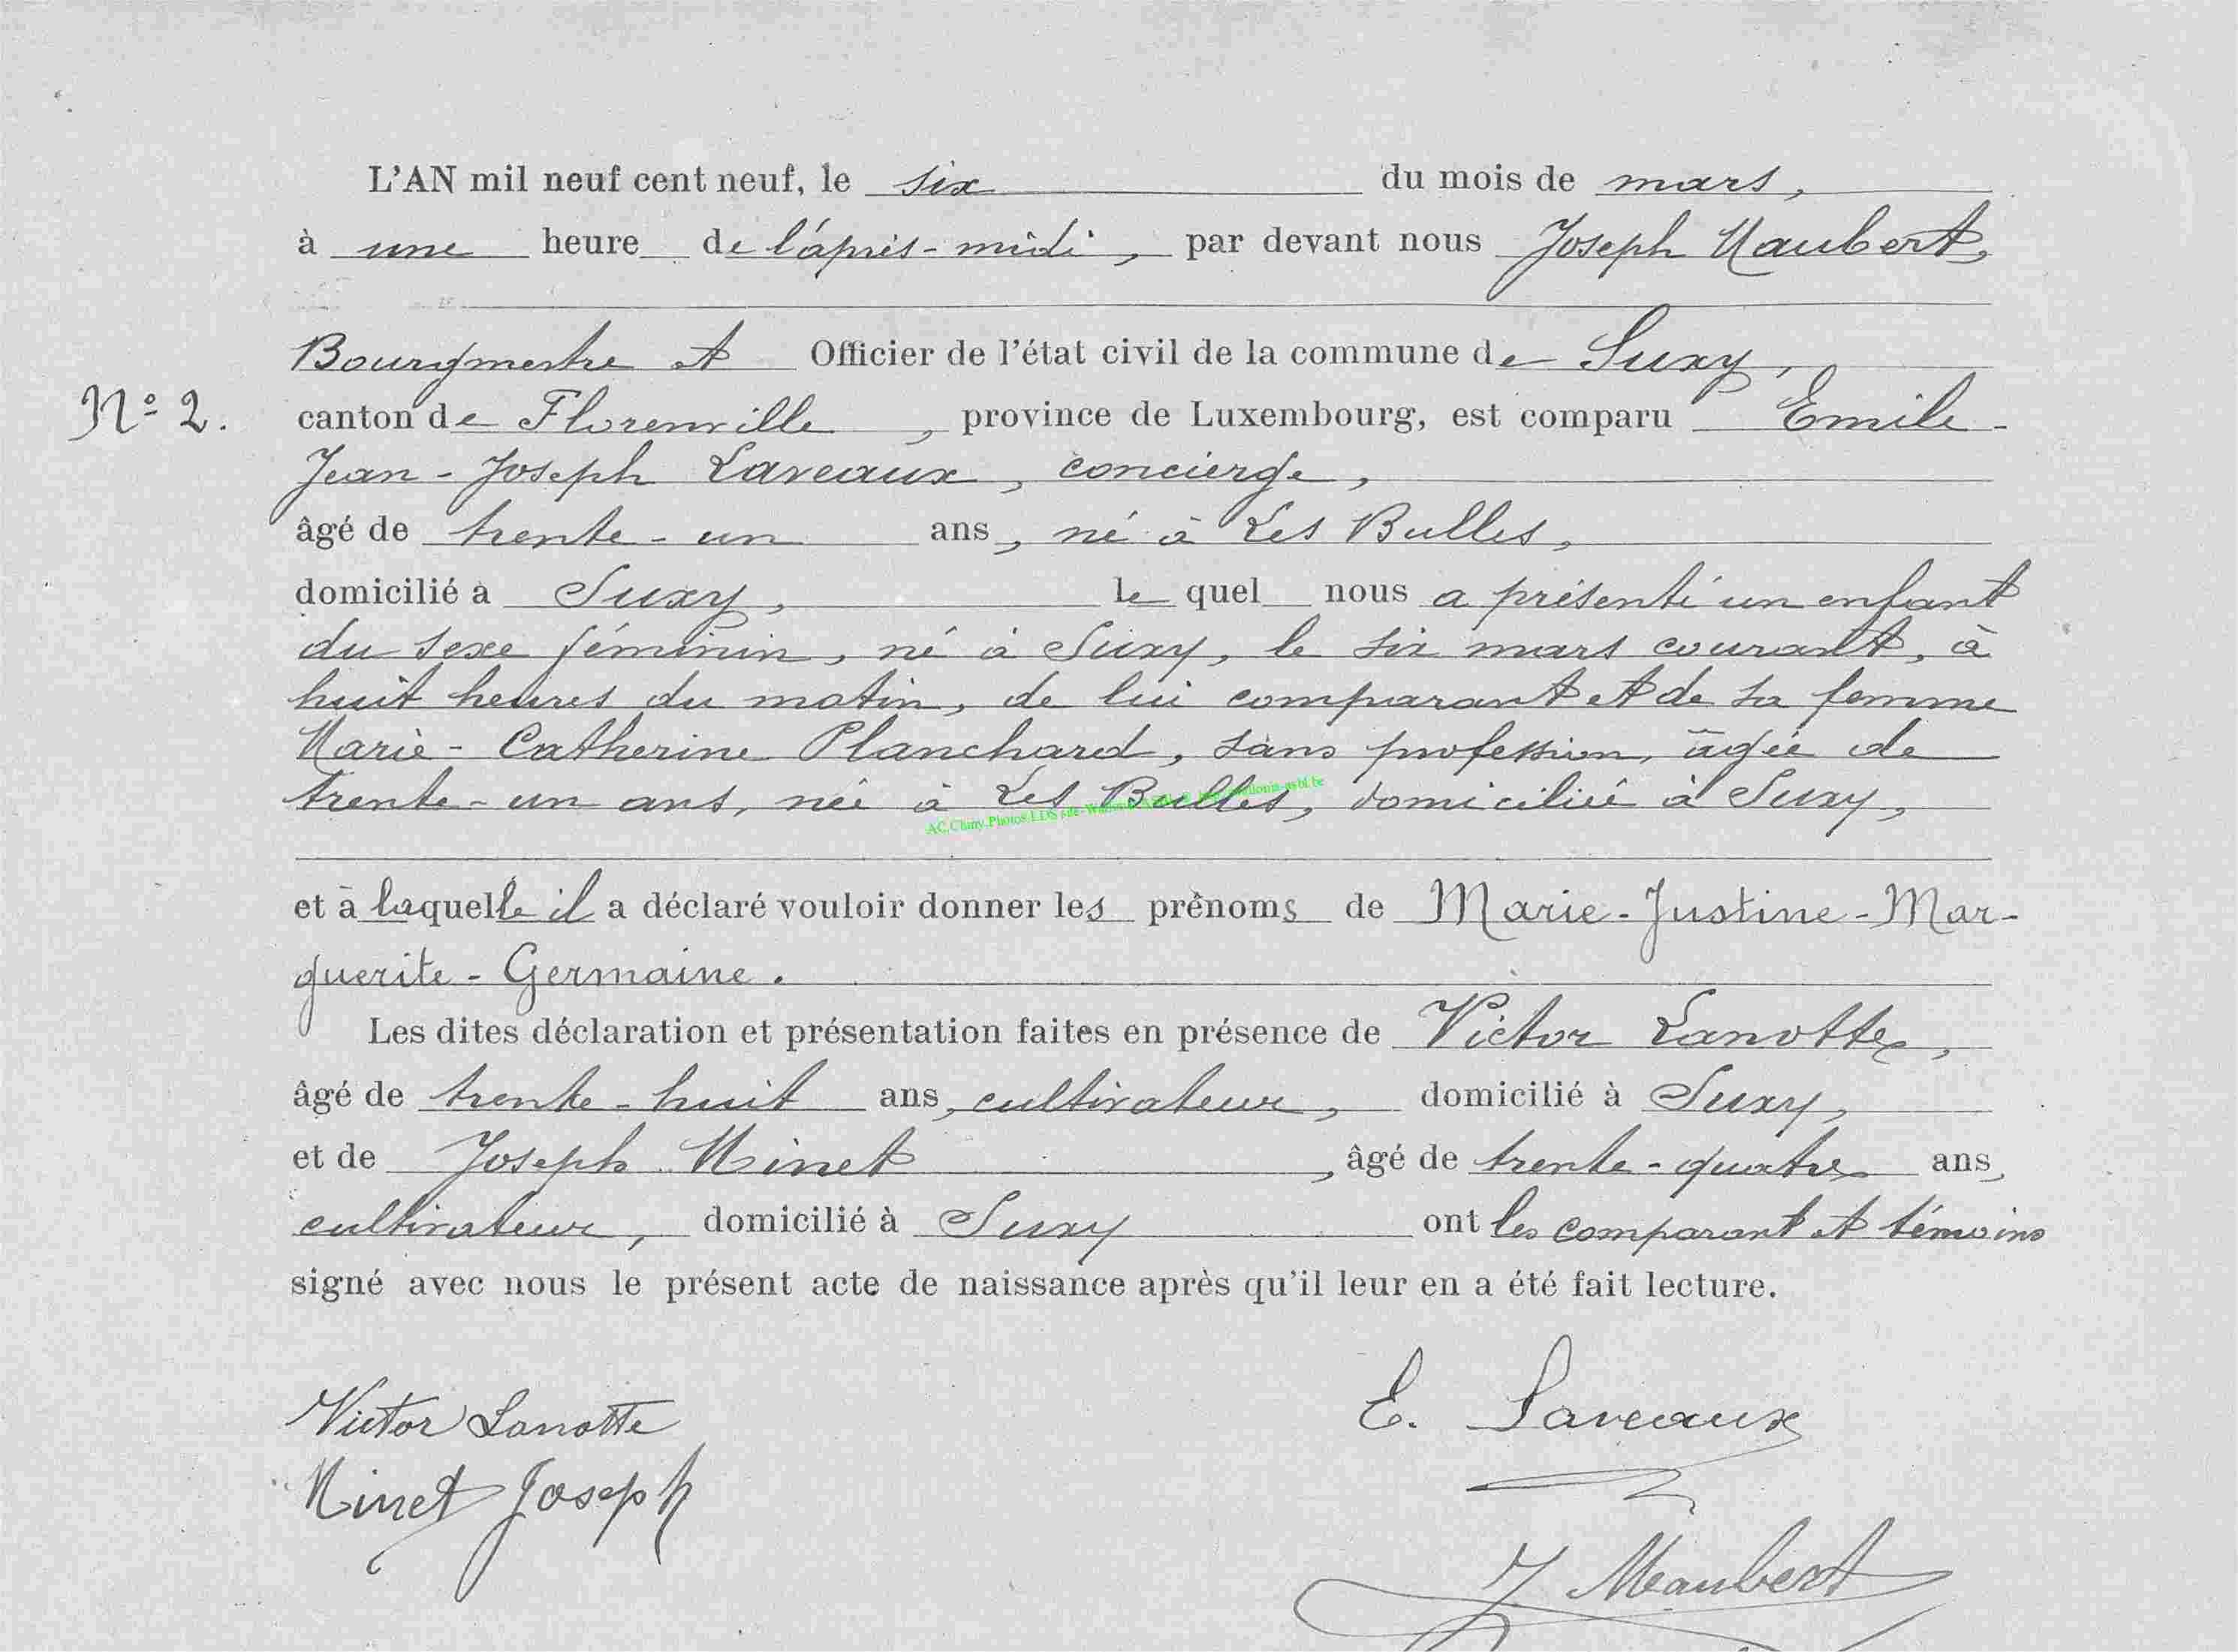 L'AN mil neuf cent neuf, le six du mois de mars,
à une heure de l'après-midi, par devant nous Joseph Maubert,
Bourgmestre et Officier de l'état civil de la commune de Suxy,
N° 2. canton de Florenville, province de Luxembourg, est comparu Emile-
Jean-Joseph Laveaux, concierge,
âgé de trente-un ans, né à Les Bulles,
domicilié à Suxy, le quel nous a présenté un enfant
du sexe féminin, né à Suxy, le six mars courant, à
huit heures du matin, de lui comparant et de sa femme
Marie-Catherine Planchard, sans profession, âgée de
trente-un ans, née à Les Bulles, domiciliée à Suxy,
et à laquelle il a déclaré vouloir donner les prénoms de Marie-Justine-Mar-
guerite-Germaine.
Les dites déclaration et présentation faites en présence de Victor Lanotte,
âgé de trente-huit ans, cultivateur, domicilié à Suxy,
et de Joseph Minet, âgé de trente-quatre ans,
cultivateur, domicilié à Suxy ont les comparant et témoins
signé avec nous le présent acte de naissance après qu'il leur en a été fait lecture.
Victor Lanotte E. Laveaux
Minet Joseph
J. Maubert